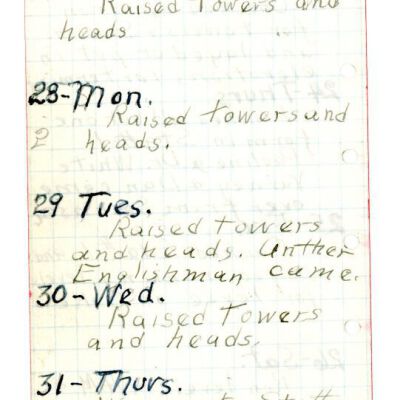 Raised Towers and
heads
28-Mon.
Raised towers and
2 heads.
29 Tues.
Raised towers
and heads. Unther
Englishman came.
30-Wed.
Raised Towers
and heads.
31-Thurs.